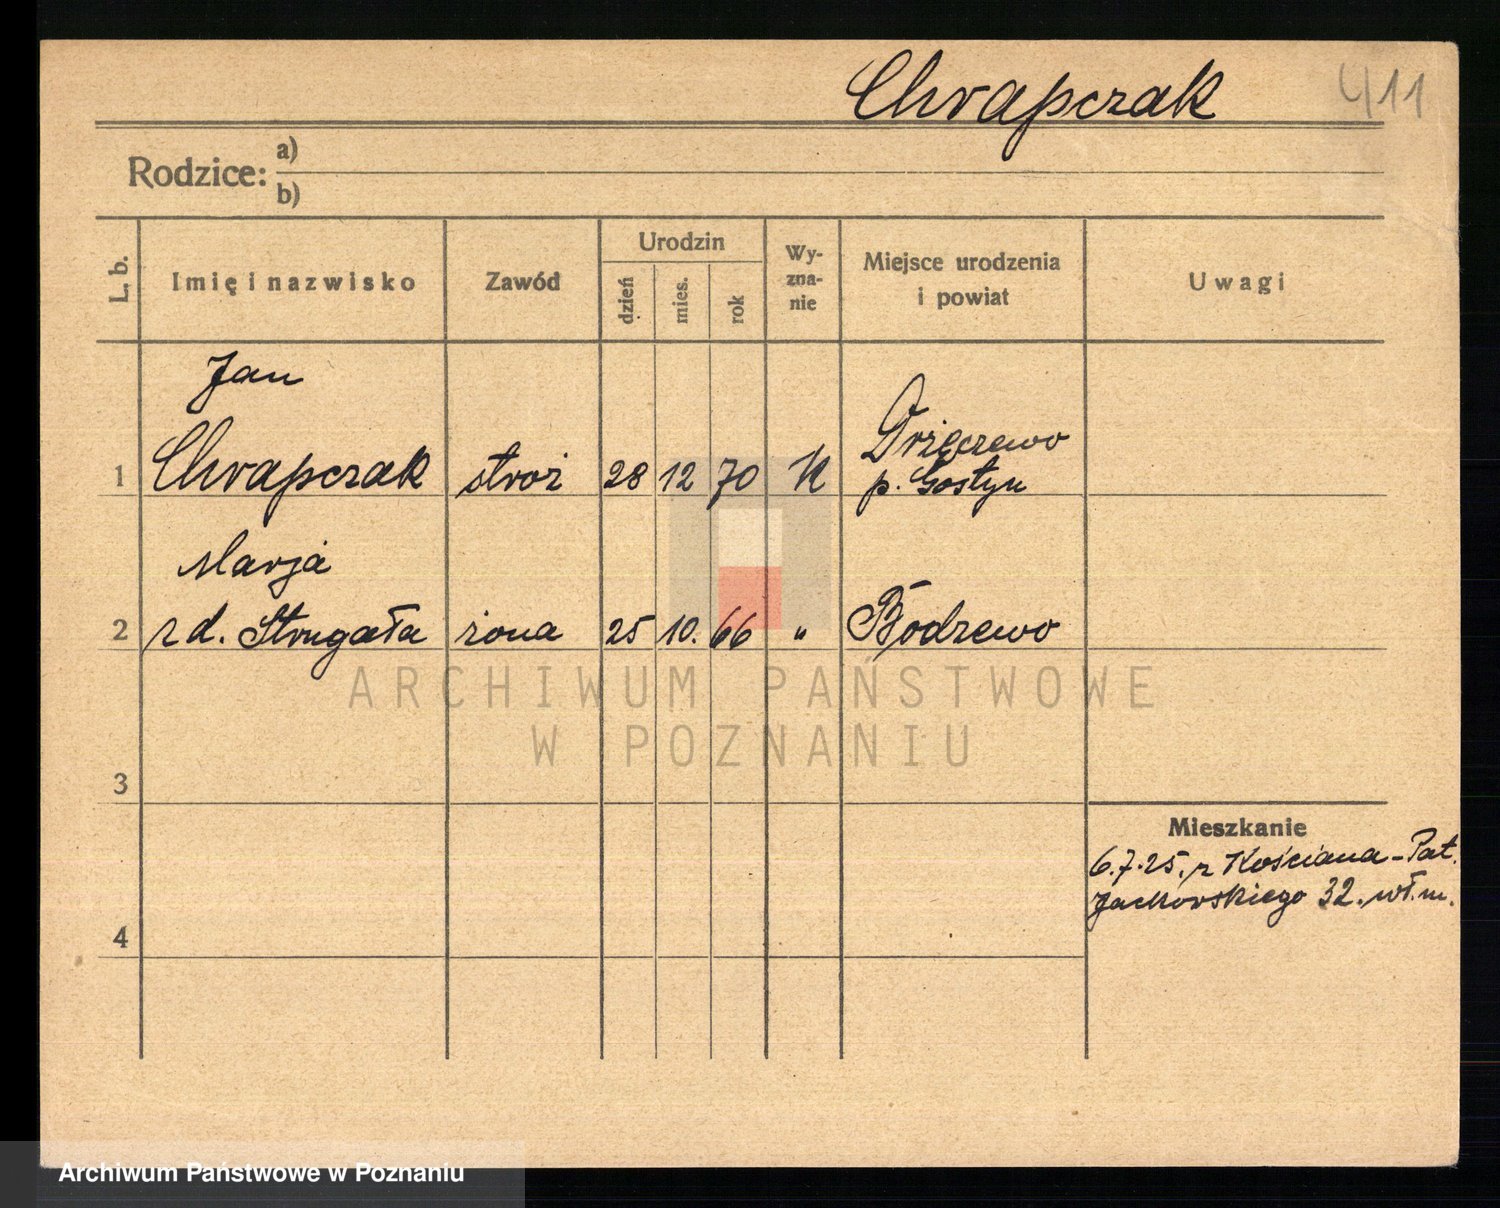 Chrapczak 411
Rodzice: a)
b)
L. b. Imię i nazwisko Zawód Urodzin dzień mies. rok Wy-zna-nie Miejsce urodzenia i powiat Uwagi
Jan
1 Chrapczak stroż 28 12 70 K Drzęczewo
p. Gostyn
Marja
2 z d. Strugała żona 25 10. 66 " Bodzewo
ARCHIWUM PAŃSTWOWE
W POZNANIU
3
Mieszkanie
6.7.25. z Kościana - Pat.
Jackowskiego 32. wł. m.
4
Archiwum Państwowe w Poznaniu